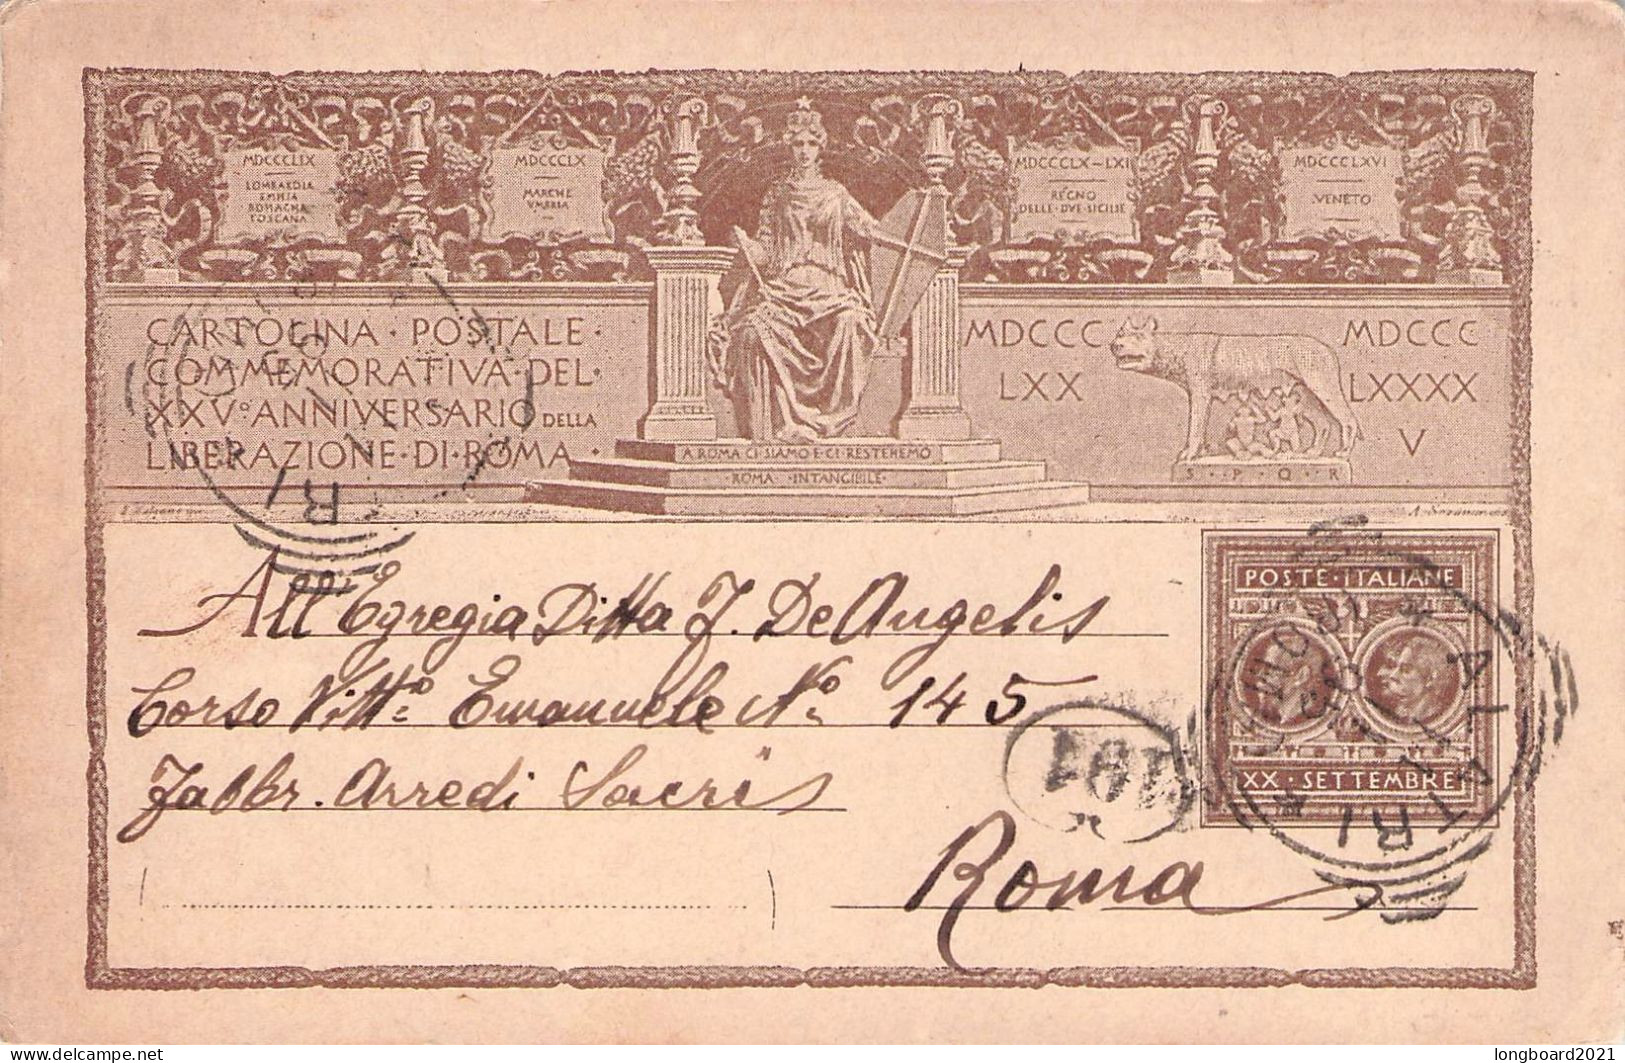 MDCCCLIX
LOMBARDIA
EMILIA
ROMAGNA
TOSCANA
MDCCCLX
MARCHE
VMBRIA
MDCCCLX-LXI
REGNO
DELLE·DVE·SICILIE
MDCCCLXVI
VENETO
CARTOLINA · POSTALE ·
COMMEMORATIVA · DEL ·
XXVº ANNIVERSARIO DELLA
LIBERAZIONE · DI · ROMA ·
A ROMA CI SIAMO E CI RESTEREMO
· ROMA · INTANGIBILE ·
MDCCC
LXX
MDCCC
LXXXX
V
S · P · Q · R
POSTE · ITALIANE
XX · SETTEMBRE
ALATRI
All'Egregia Ditta J. De Angelis
Corso Vittº Emanuele Nº 145
Fabbr. Arredi Sacri
Roma
www.delcampe.net
longboard2021